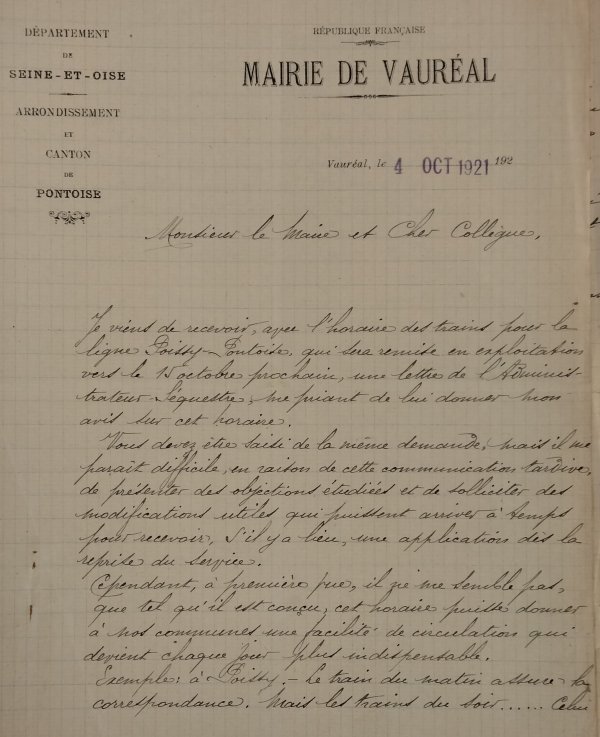 DÉPARTEMENT
DE
SEINE-ET-OISE
ARRONDISSEMENT
ET
CANTON
DE
PONTOISE
RÉPUBLIQUE FRANÇAISE
MAIRIE DE VAURÉAL
Vauréal, le 4 OCT 1921 192
Monsieur le Maire et Cher Collègue,
Je viens de recevoir, avec l'horaire des trains pour la
ligne Poissy-Pontoise, qui sera remise en exploitation
vers le 15 octobre prochain, une lettre de l'Adminis-
trateur Séquestre, me priant de lui donner mon
avis sur cet horaire.
Vous devez être saisi de la même demande, mais il me
paraît difficile, en raison de cette communication tardive,
de présenter des objections étudiées et de solliciter des
modifications utiles qui puissent arriver à temps
pour recevoir, s'il y a lieu, une application dès la
reprise du service.
Cependant, à première vue, il ne me semble pas,
que tel qu'il est conçu, cet horaire puisse donner
à nos communes une facilité de circulation qui
devient chaque jour plus indispensable.
Exemple: à Poissy.- Le train du matin assure la
correspondance. Mais les trains du soir...... Celui